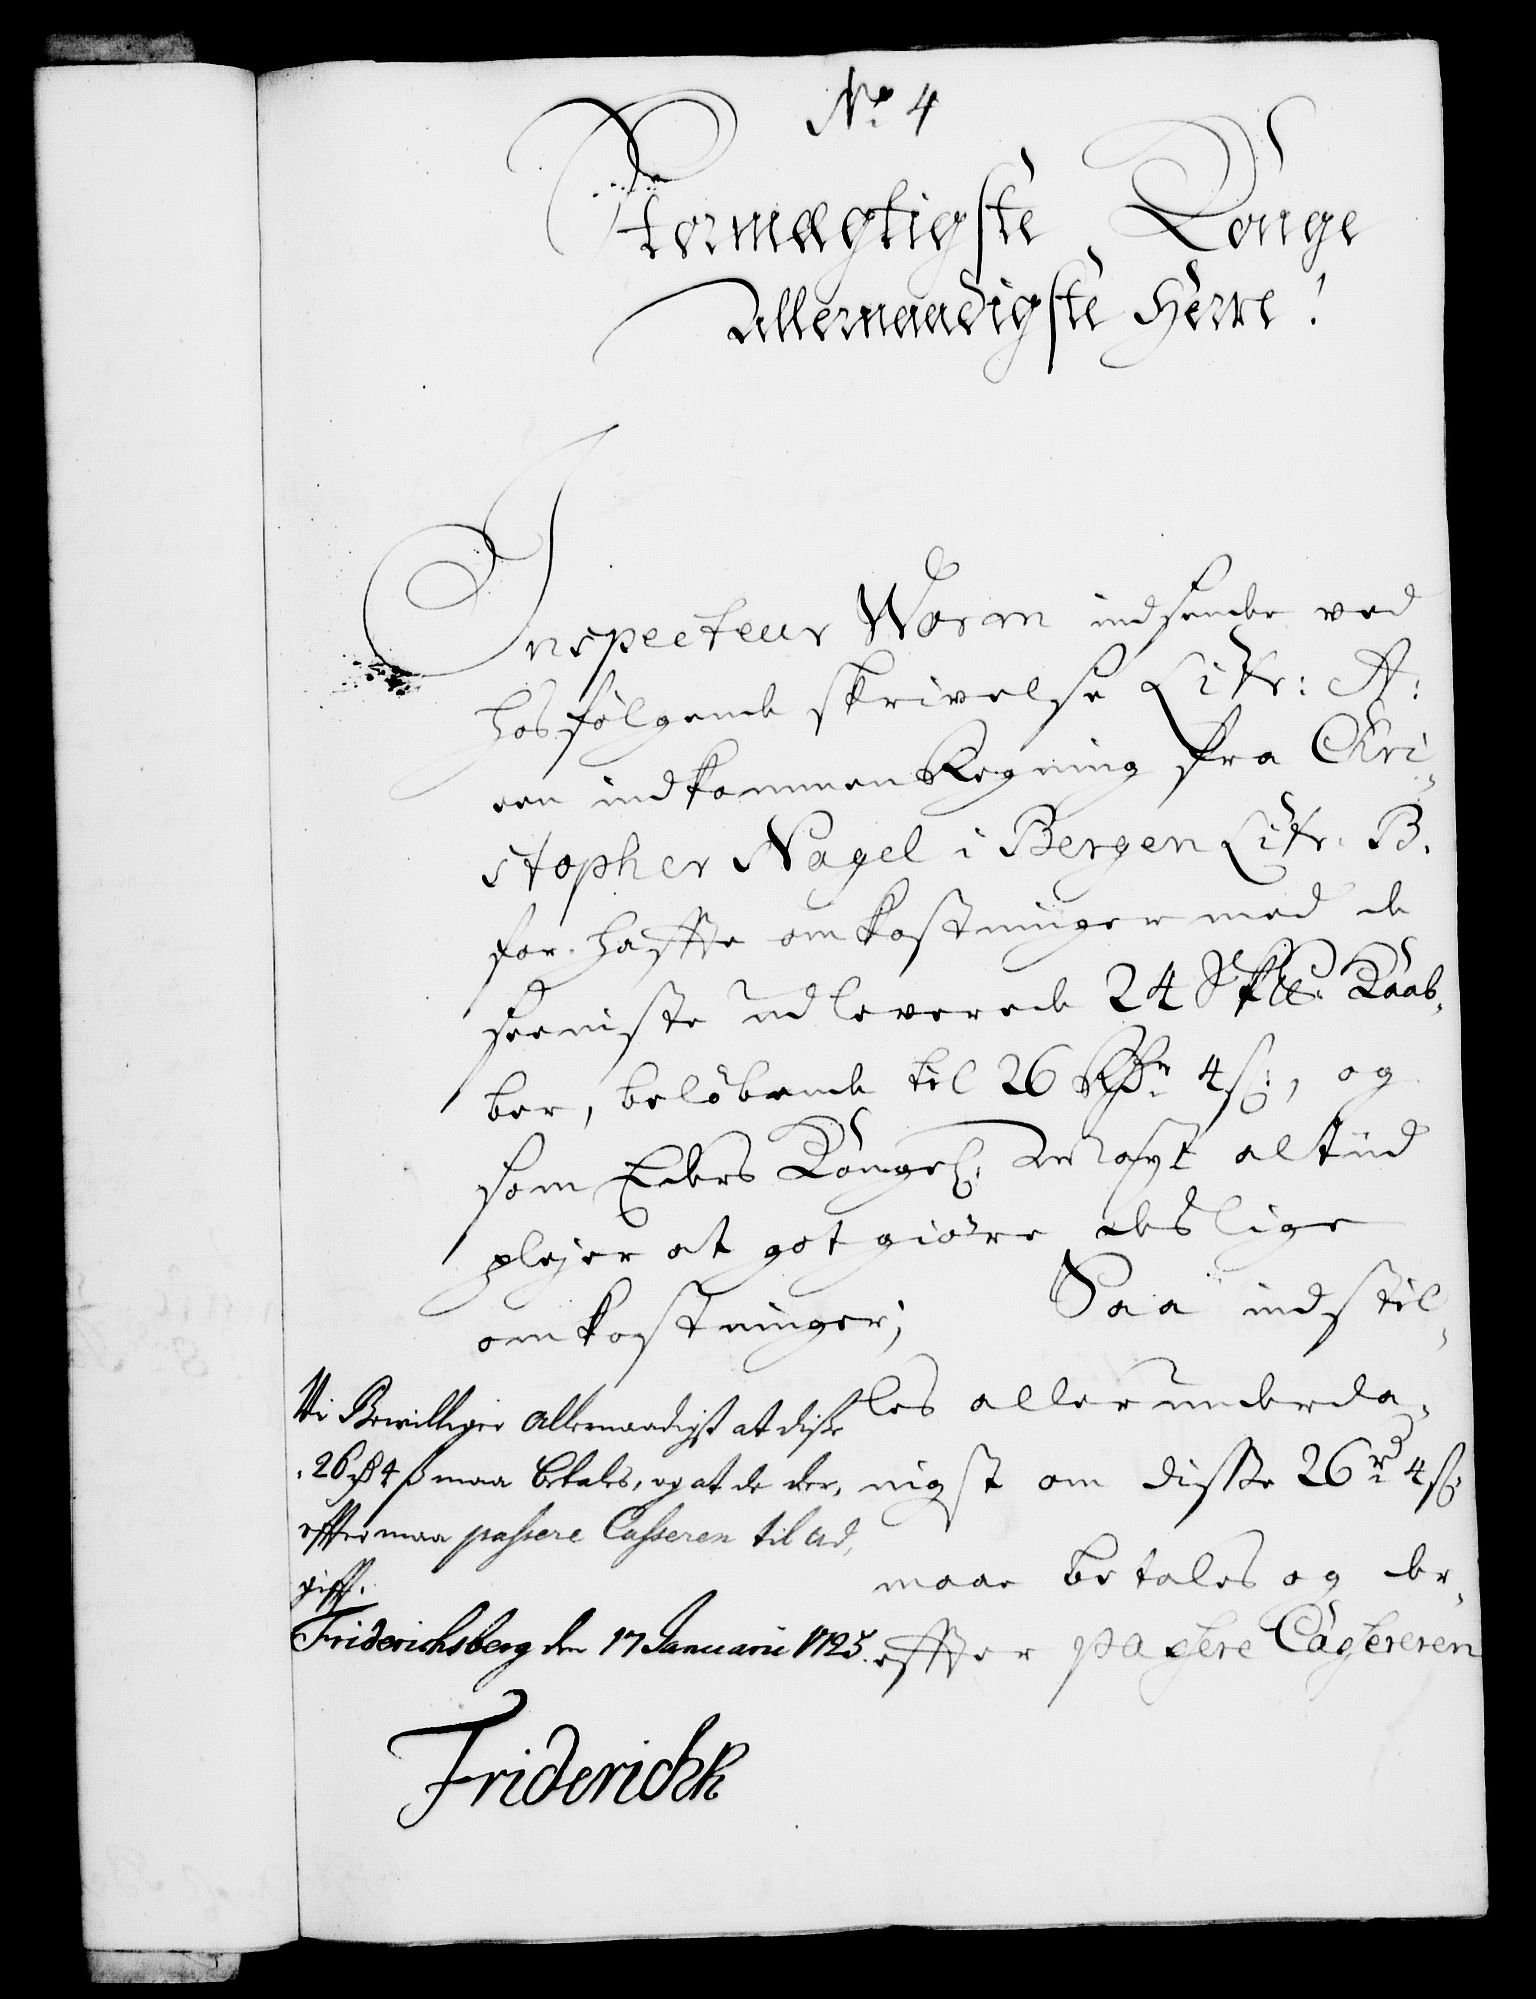 No 4
Stormægtigste Konge
Allernaadigste Herre!
Inspecteur Worm indsender ved
hosfølgende skrivelse Litr: A:
een indkommen Regning fra Chri-
stopher Nagel i Bergen Litr. B.
for hafte omkostninger med de
seeniste udleverede 24 Skll: Kaab-
ber, beløbende til 26 Rdr 4 s:, og
som Eders Kongel: Mayt altiid
plejer at godtgiøre deslige
omkostninger; Saa indstil-
les allerunderda-
nigst om disse 26 rd 4 s:
maae betales og der-
effter passere Casseren
Vi Bewilliger Allernaadigst at disse
26 rd 4 s maa betales, og at de der-
effter maa passere Casseren til ud-
gifft.
Friderichsberg den 17 Januarii 1725.
Friderich R